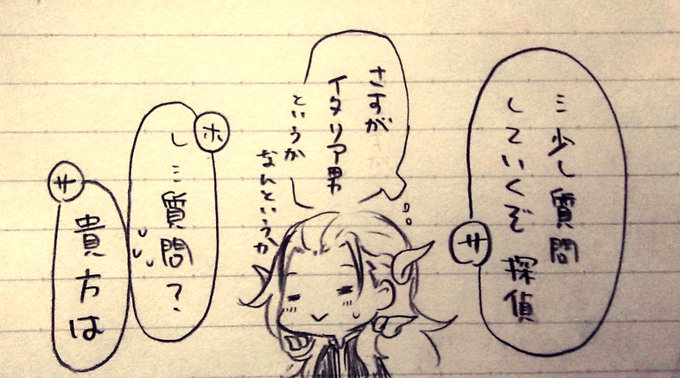 ミ少し質問
していくぞ 探偵
サ
さすが
イタリア男
というか
なんというか
ホ
しミ質問？
サ
貴方は